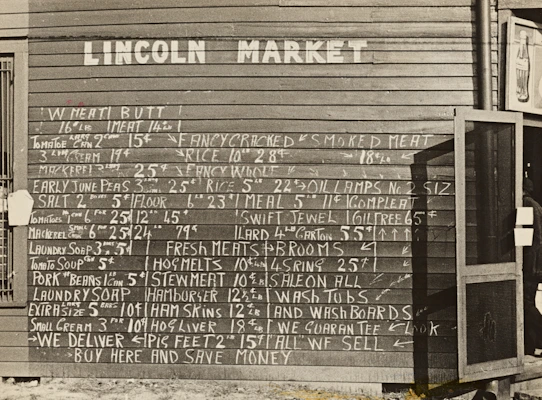 LINCOLN MARKET
W MEAT BUTT
16¢ LB MEAT 14¢ LB
TOMATOE LARG CAN 2 15¢ →FANCY CRACKED SMOKED MEAT
3 CREAM 19¢ →RICE 10 LB 28¢ →18¢ LB
MACKEREL 3 25¢ →FANCY WHOLE
EARLY JUNE PEAS 3 25¢ RICE 5 LB 22¢→OIL LAMPS No 2 SIZ
SALT 2 5¢ FLOUR 6 LB 23¢ MEAL 5 LB 11¢ COMPLEAT
TOMATOES No CAN 6 FOR 25¢ 12 LB 45¢ SWIFT JEWEL OIL FREE 65¢
MACKEREL CAN 6 FOR 25¢ 24 LB 79¢ LARD 4 LB CARTON 55¢
LAUNDRY SOAP 3 5¢ FRESH MEATS→BROOMS
TOMATO SOUP CAN 5¢ HOG MELTS 10¢ LB 4 SPRING 25¢
PORK BEANS LB CAN 5¢ STEW MEAT 10¢ LB SALE ON ALL
LAUNDRY SOAP HAMBURGER 12½¢ LB WASH TUBS
EXTRA SIZE 5 LARG BARS 10¢ HAM SKINS 12¢ LB AND WASH BOARDS
SMALL CREAM 3 FOR 10¢ HOG LIVER 18¢ LB WE GUARANTEE ←LOOK
→WE DELIVER ←PIG FEET 2 LB 15¢ "ALL" WE SELL ←
→BUY HERE AND SAVE MONEY